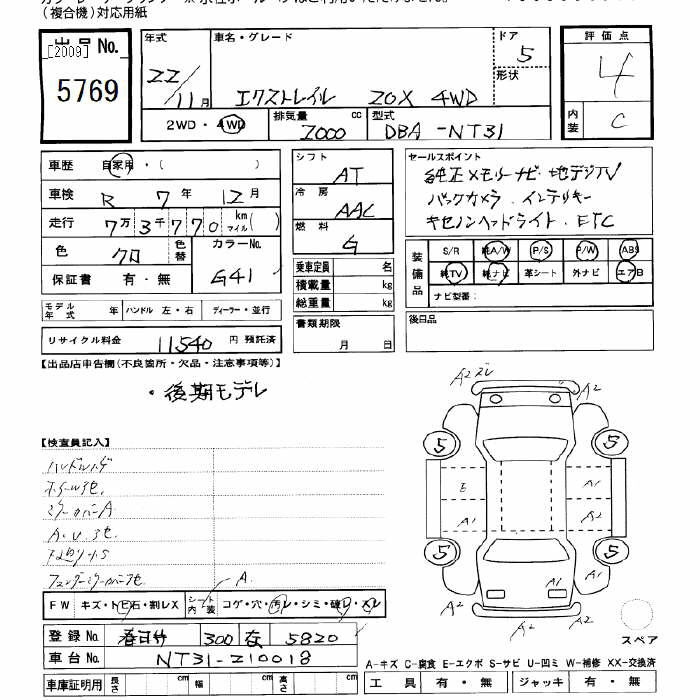 (複合機)対応用紙
出品 No.
[2009]
5769
年式
22/11月
車名・グレード
エクストレイル 20X 4WD
ドア
5
形状
2WD・4WD
排気量 cc
2000
型式
DBA-NT31
評価点
4
内装
C
車歴 自家用・( )
車検 R 7年 12月
走行 7万3千770 km マイル( )
色 クロ 色替
カラーNo. G41
保証書 有・無
シフト AT
冷房 AAC
燃料 G
乗車定員 名
積載量 kg
総重量 kg
書類期限
月 日
セールスポイント
純正メモリーナビ・地デジTV
バックカメラ・インテリキー
キセノンヘッドライト・ETC
装備品
S/R 純A/W P/S P/W ABS
純TV 純ナビ 革シート 外ナビ エアB
ナビ型番:
モデル年式 年 ハンドル 左・右 ディーラー・並行
リサイクル料金 11540 円 預託済
後日品
【出品店申告欄(不良箇所・欠品・注意事項等)】
・後期モデル
【検査員記入】
A2 A2
5 5
E A1
A1 A2
5 5
A1 A1
A2 A2 A2
A.
FW キズ・トビ石・割レX
シート内装 コゲ・穴・汚レ・シミ・破レ・スレ
登録No. 春日井 300 5820
車台No. NT31-210018
車庫証明用 長さ cm 幅 cm 高さ cm
スペア
A-キズ C-腐食 E-エクボ S-サビ U-凹ミ W-補修 XX-交換済
工具 有・無 ジャッキ 有・無